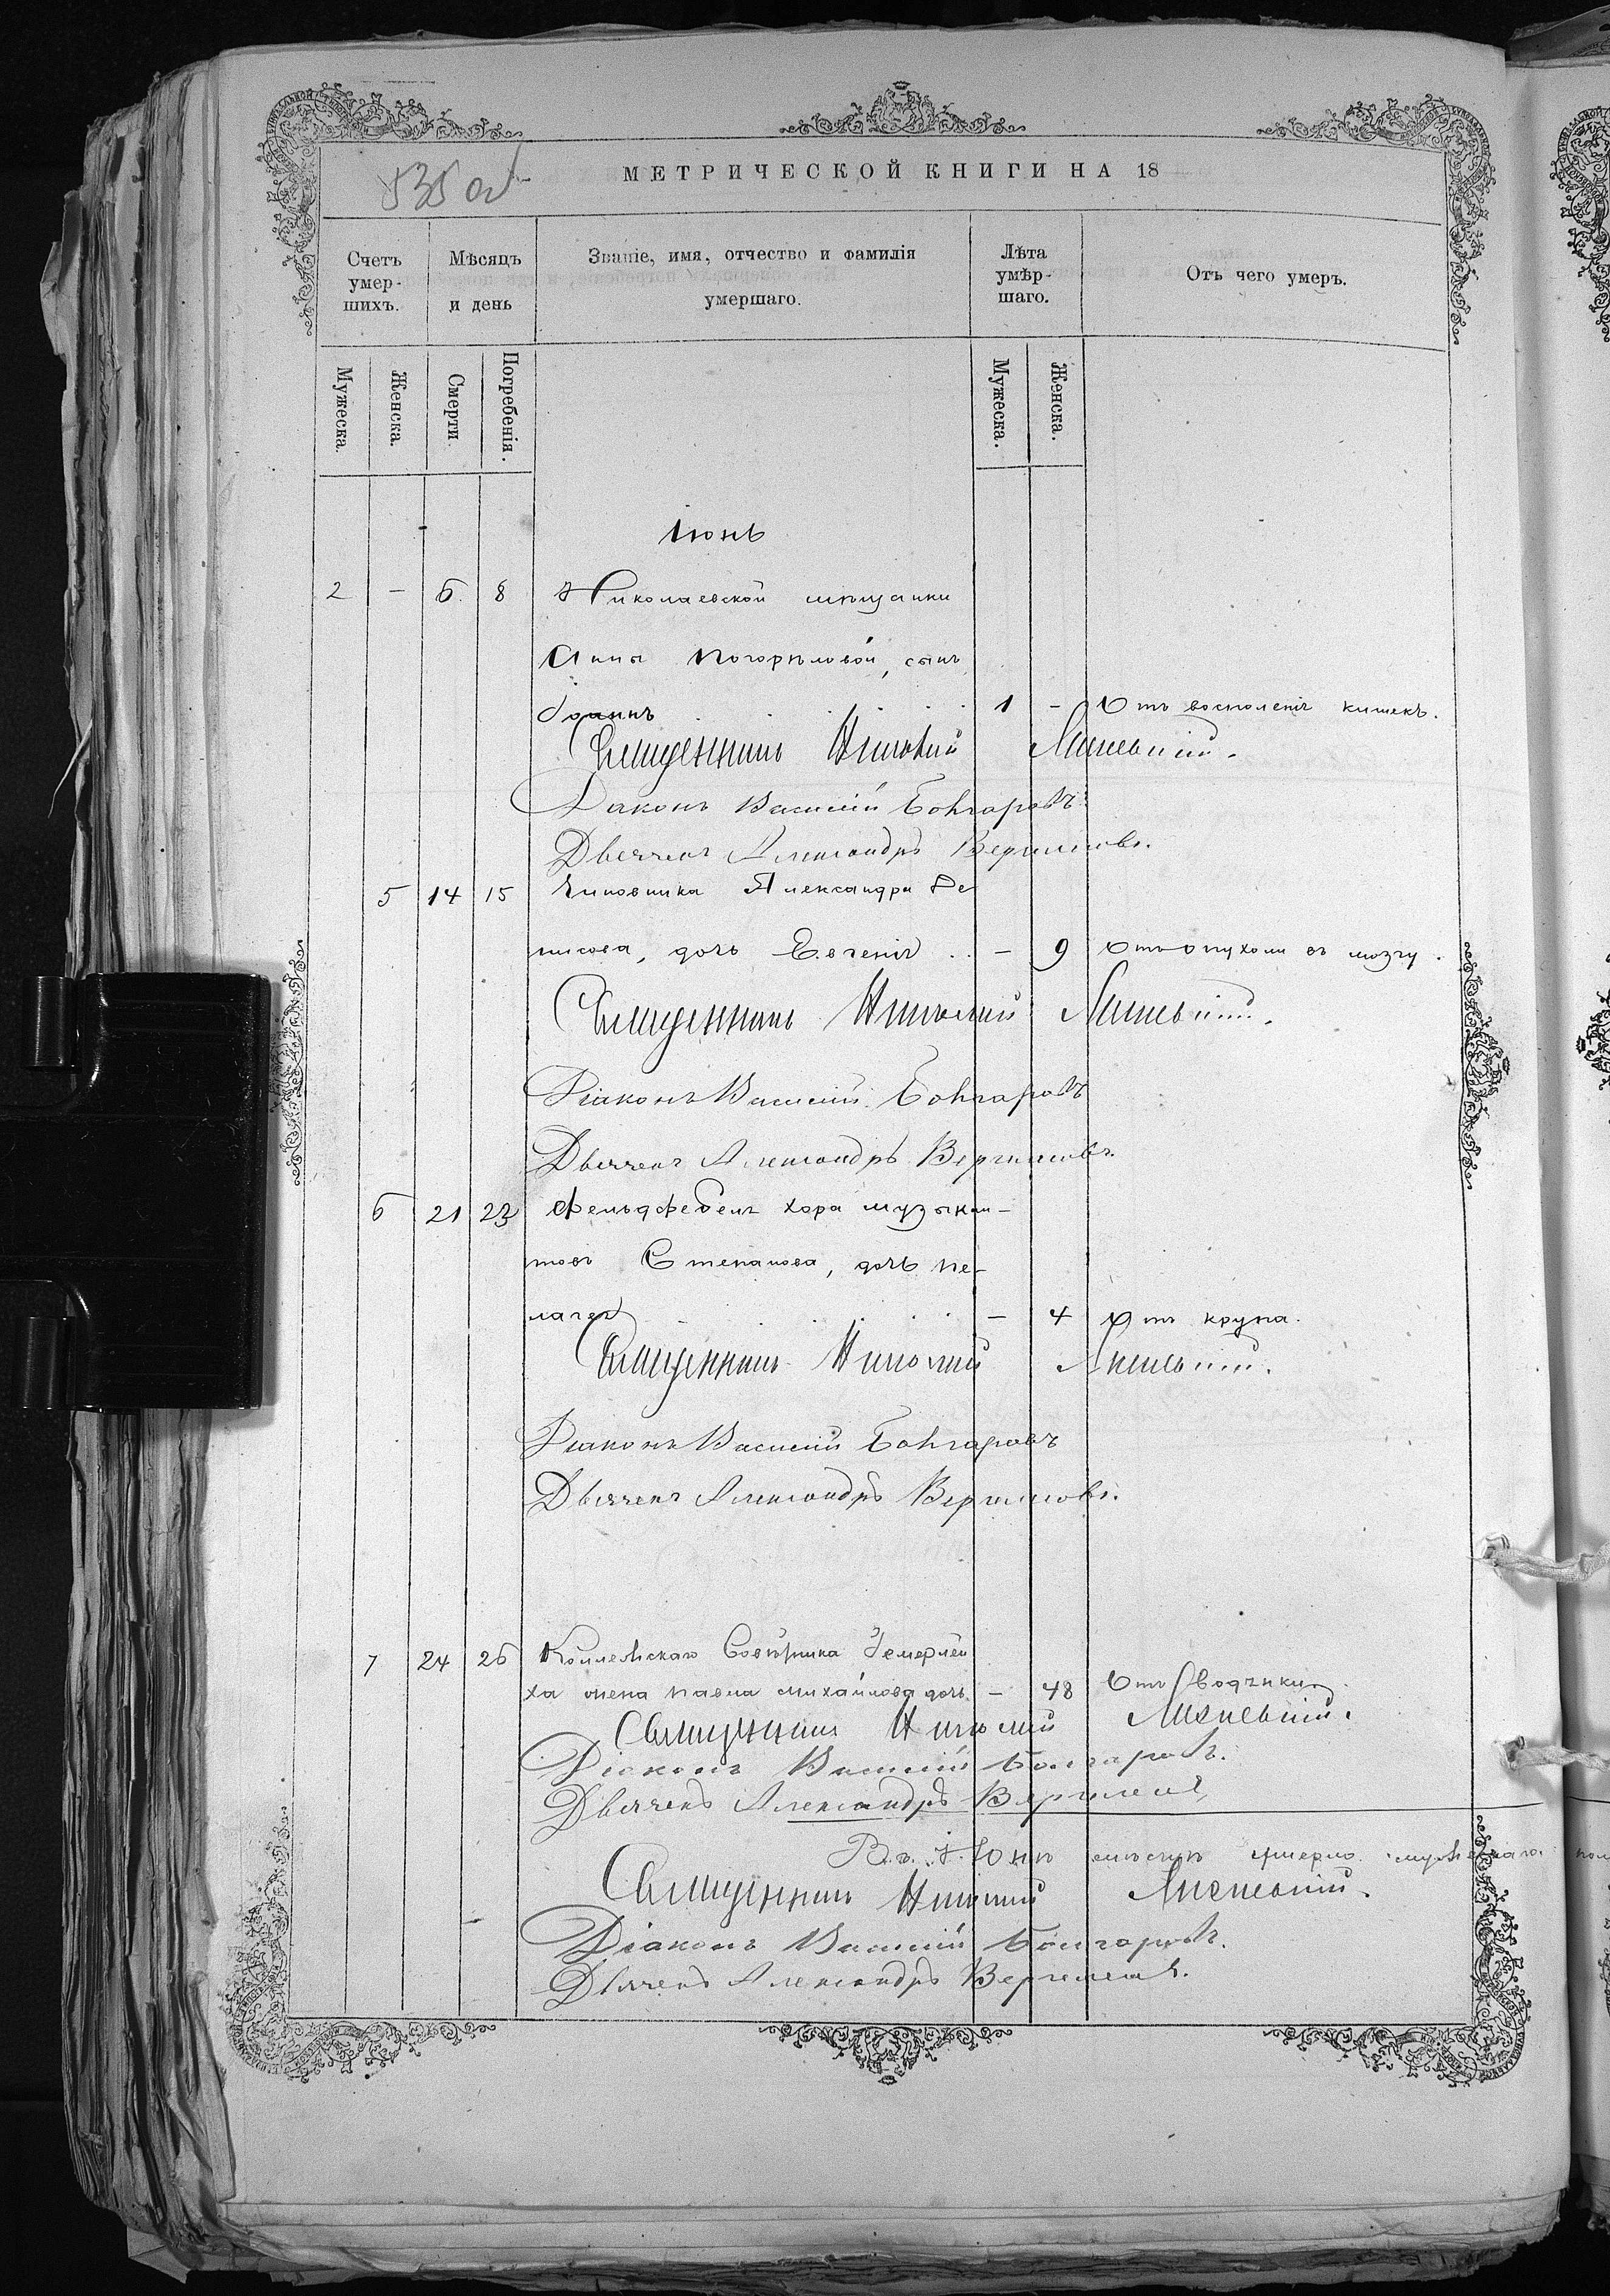 535 об
МЕТРИЧЕСКОЙ КНИГИ НА 18
Счетъ умер- шихъ.
Мѣсяцъ и день
Званіе, имя, отчество и фамилія умершаго.
Лѣта умѣр- шаго.
Отъ чего умеръ.
Мужеска. Женска. Смерти. Погребенія. Мужеска. Женска.
Іюнь
2 - 6 8 Николаевской мѣщанки
Анны Погорѣловой, сынъ
Іоаннъ 1 - Отъ воспаленія кишекъ.
Священникъ Николай
Діаконъ Василій Болгаровъ
Дьячекъ Александръ
5 14 15 Чиновника Александра Де
нисова, дочь Евгенія - 9 Отъ опухоли въ мозгу.
Священникъ Николай
Діаконъ Василій Болгаровъ
Дьячекъ Александръ
6 21 23 Фельдфебеля хора музыкан-
товъ Степанова, дочь Пе-
лагея - 4 Отъ крупа.
Священникъ Николай
Діаконъ Василій Болгаровъ
Дьячекъ Александръ
7 24 26 Коллежскаго Совѣтника
жена Михайлова дочь - 48 Отъ водянки
Священникъ Николай
Діаконъ Василій Болгаровъ.
Дьячекъ Александръ
Въ Іюнѣ мѣсяцѣ умерло мужескаго
Священникъ Николай
Діаконъ Василій Болгаровъ.
Дьячекъ Александръ